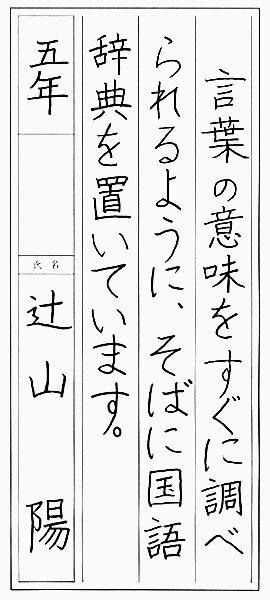 言葉の意味をすぐに調べ
られるように、そばに国語
辞典を置いています。
五年
氏名
辻山陽